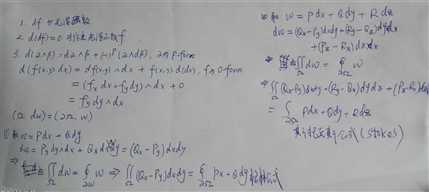 1. df 为光滑函数
2. d(df)=0 对任意光滑函数f
3. d(α∧β)=dα∧β+(-1)^p(α∧dβ), α为p-form
d(f(x,y)dx)=df(x,y)∧dx+f(x,y)d(dx), f为0-form
=(fxdx+fydy)∧dx+0
=fydy∧dx
(Ω, dω)=(∂Ω, ω)
ω=Pdx+Qdy
dω=Pydy∧dx+Qxdx∧dy=(Qx-Py)dxdy
⇒ ∬Ω dω=∮∂Ω ω ⇒ ∬Ω(Qx-Py)dxdy=∮∂Ω Pdx+Qdy 格林公式
ω=Pdx+Qdy+Rdz
dω=(Qx-Py)dxdy+(Ry-Qz)dydz
+(Pz-Rx)dzdx
⇒ ∬Ω dω=∮∂Ω ω
⇒ ∬Ω(Qx-Py)dxdy+(Ry-Qz)dydz+(Pz-Rx)dzdx
=∫∂Ω Pdx+Qdy+Rdz
公式(Stokes)